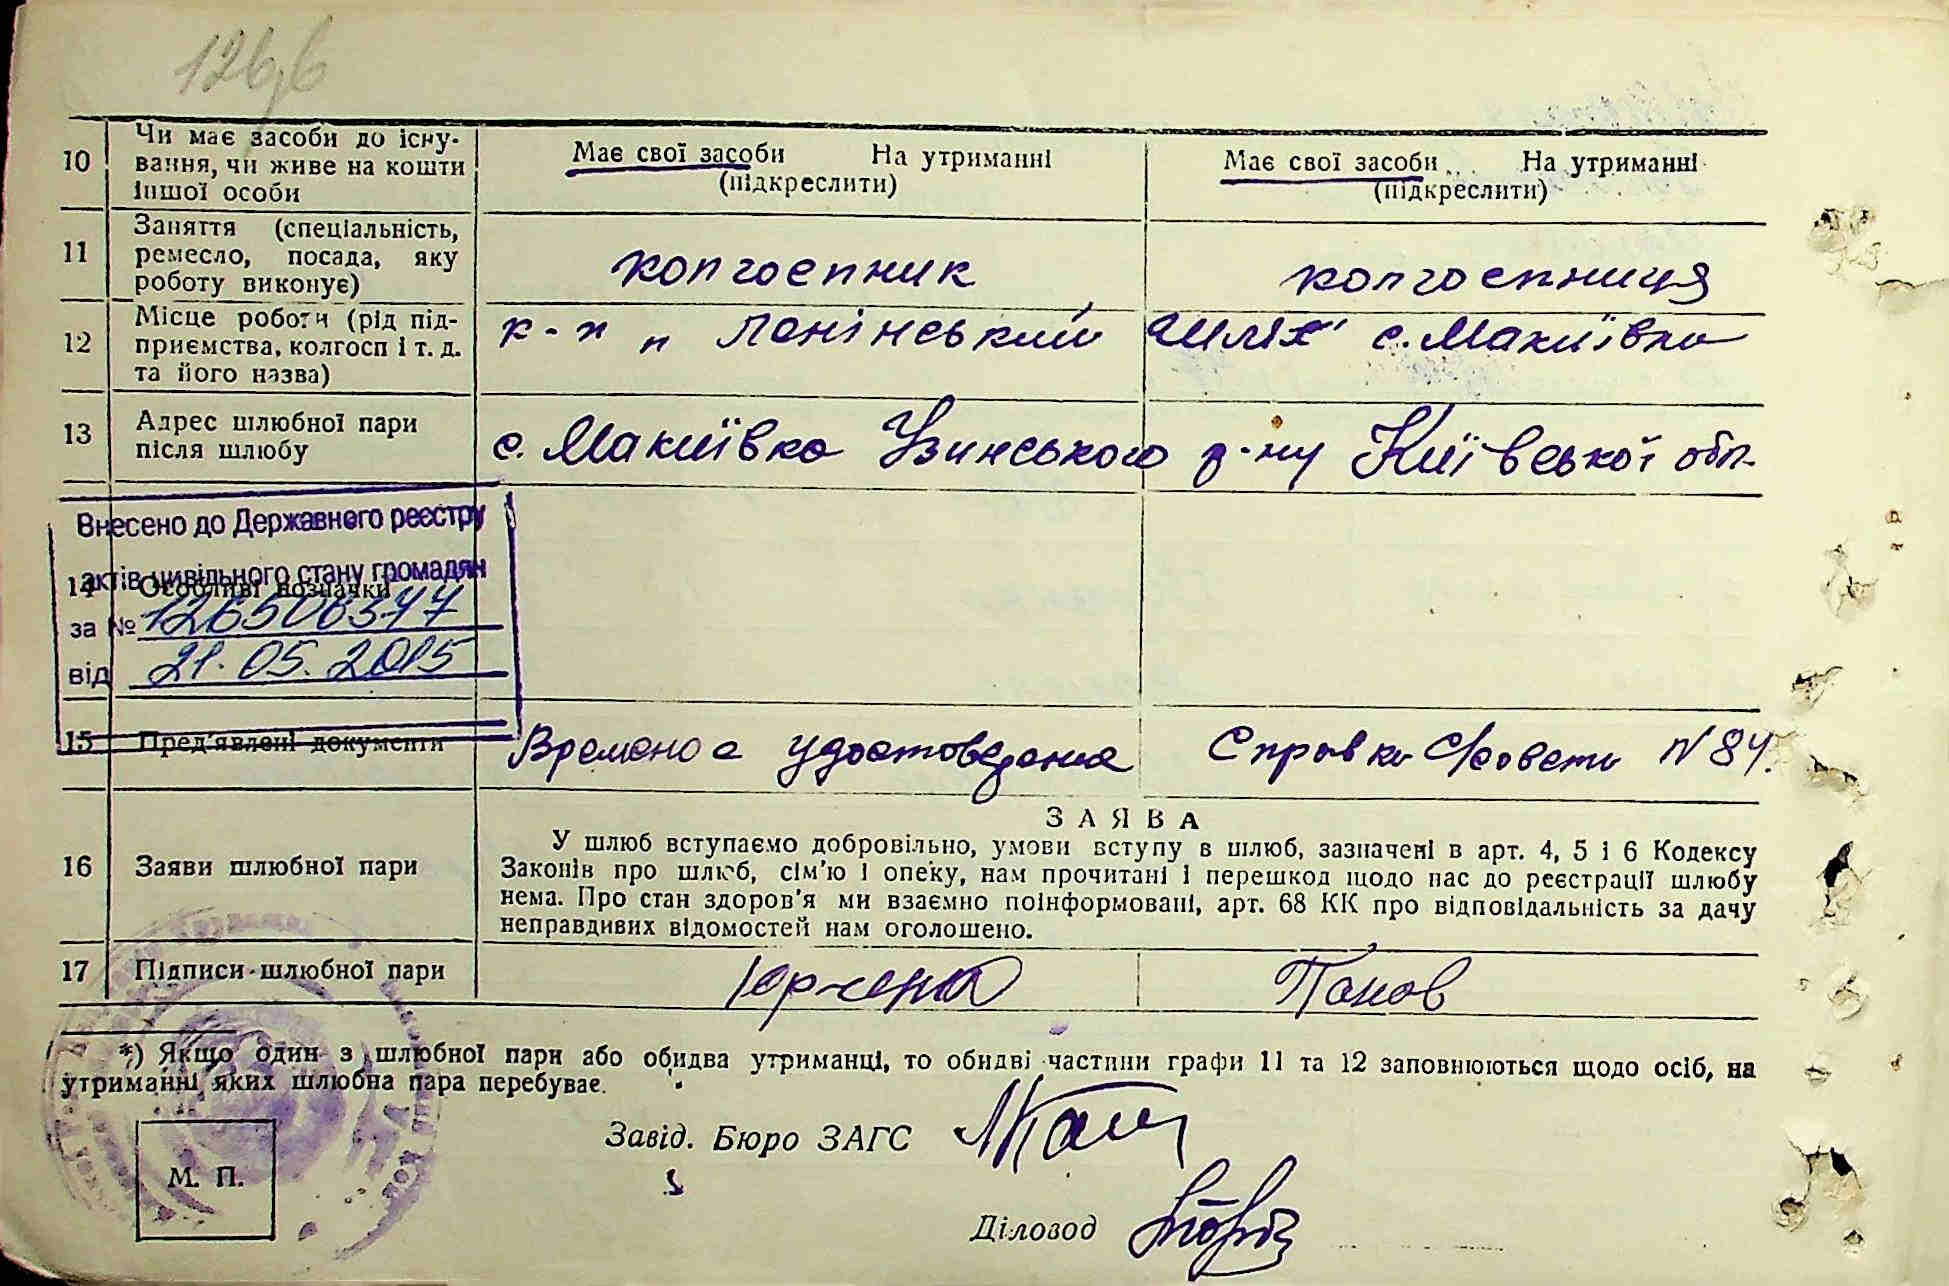 126,6
10 Чи має засоби до існу-
вання, чи живе на кошти
іншої особи
Має свої засоби На утриманні
(підкреслити)
Має свої засоби На утриманні
(підкреслити)
11 Заняття (спеціальність,
ремесло, посада, яку
роботу виконує)
колгоспник
колгоспниця
12 Місце роботи (рід під-
приємства, колгосп і т. д.
та його назва)
к-п „Ленінський шлях" с. Макиївка
13 Адрес шлюбної пари
після шлюбу
с. Макиївка Узинського р-ну Київської обл.
Внесено до Державного реєстру
актів цивільного стану громадян
14 Особливі позначки
за №
від 21.05.2015
15 Пред'явлені документи
Времено е удостоведение
Справка С/совета N 84.
16 Заяви шлюбної пари
ЗАЯВА
У шлюб вступаємо добровільно, умови вступу в шлюб, зазначені в арт. 4, 5 і 6 Кодексу
Законів про шлюб, сім'ю і опеку, нам прочитані і перешкод щодо нас до реєстрації шлюбу
нема. Про стан здоров'я ми взаємно поінформовані, арт. 68 КК про відповідальність за дачу
неправдивих відомостей нам оголошено.
17 Підписи шлюбної пари
Юрченко
Панов
*) Якщо один з шлюбної пари або обидва утриманці, то обидві частини графи 11 та 12 заповнюються щодо осіб, на
утриманні яких шлюбна пара перебуває.
Завід. Бюро ЗАГС
М. П.
Діловод